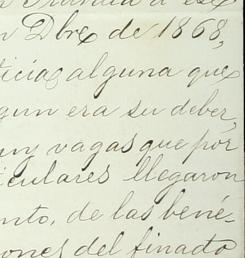 n Dbre de 1868,
ticias alguna que
gun era su deber,
uy vagas que por
iculares llegaron
nto, de las bené-
ones del finado